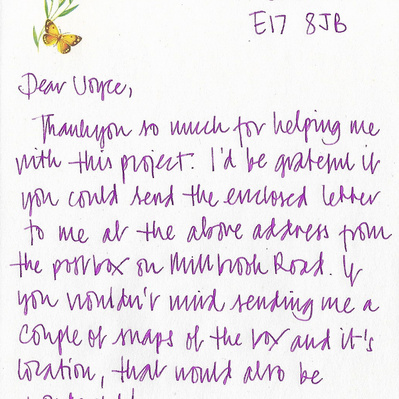 E17 8JB
Dear Joyce,
Thankyou so much for helping me
with this project. I'd be grateful if
you could send the enclosed letter
to me at the above address from
the postbox on Millbrook Road. If
you wouldn't mind sending me a
couple of snaps of the box and it's
location, that would also be